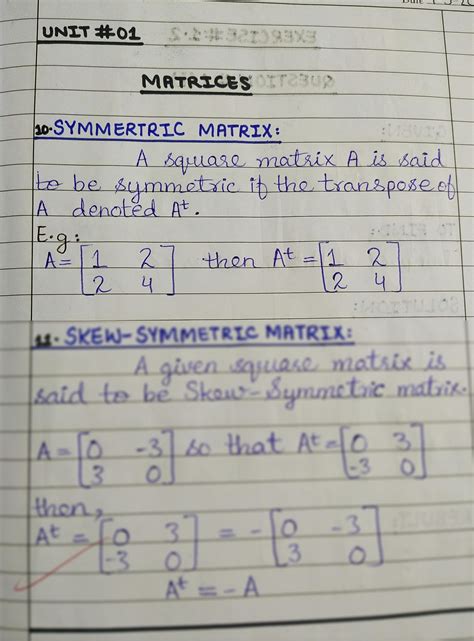 UNIT #01
MATRICES
10. SYMMERTRIC MATRIX:
A square matrix A is said
to be symmetric if the transpose of
A denoted Aᵗ.
E.g:
A = [1 2; 2 4] then Aᵗ = [1 2; 2 4]
11. SKEW-SYMMETRIC MATRIX:
A given square matrix is
said to be Skew-Symmetric matrix.
A = [0 -3; 3 0] so that Aᵗ = [0 3; -3 0]
then,
Aᵗ = [0 3; -3 0] = -[0 -3; 3 0]
Aᵗ = -A